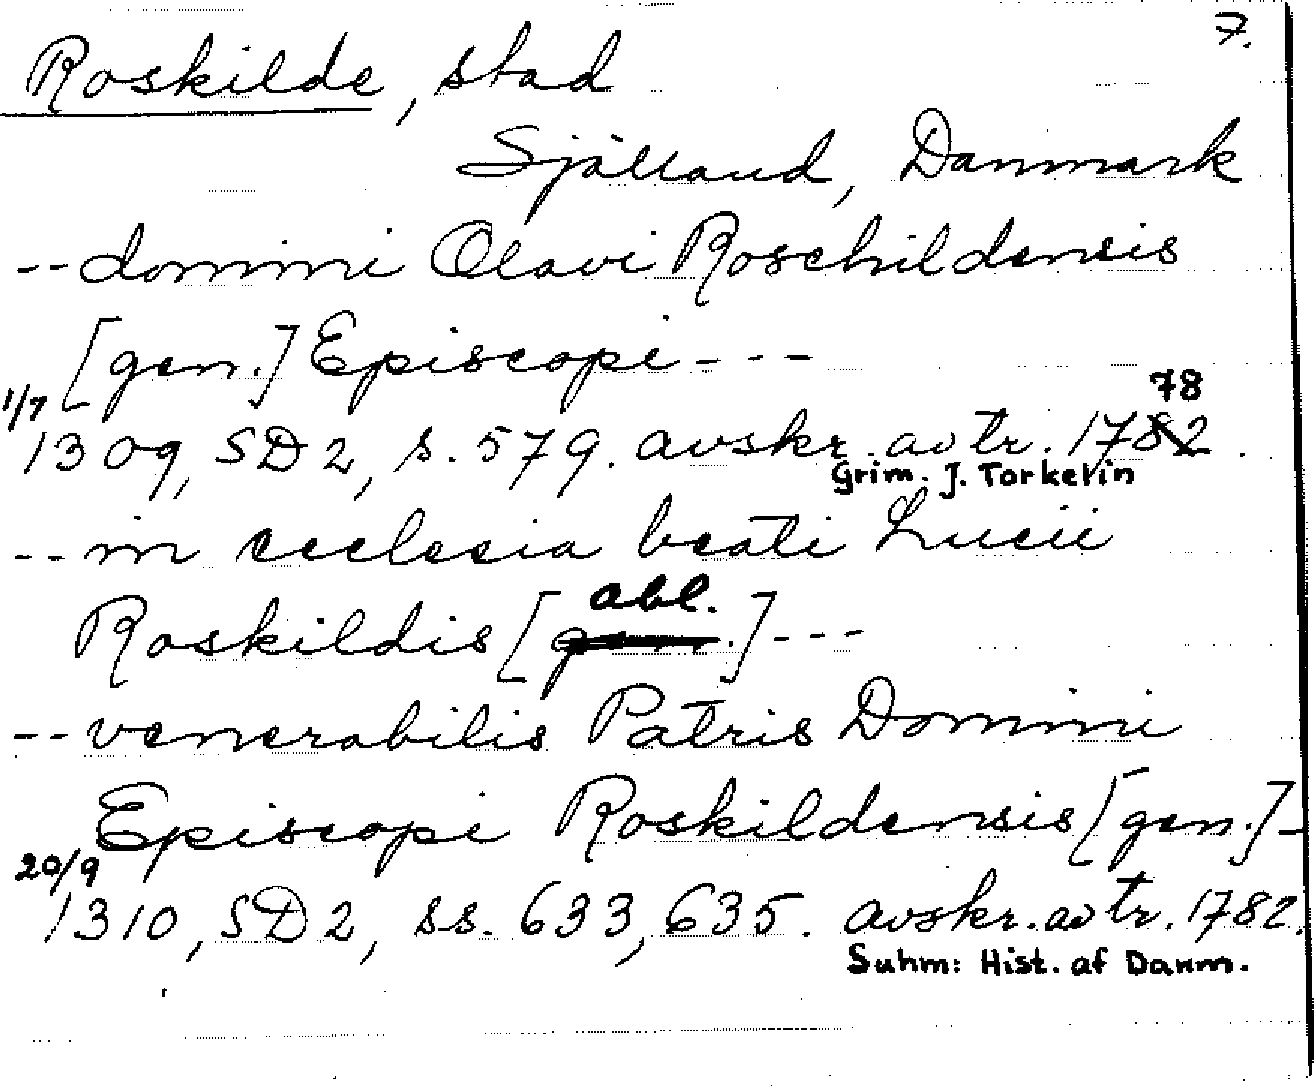 7.
Roskilde, stad
Sjålland, Danmark
--domini Olavi Roschildensis
[gen.] Episcopi---
1/7 78
1309, SD 2, s. 579. avskr. av tr. 1782.
Grim. J. Torkelin
--in ecclesia beati Lucii
abl.
Roskildis [gen.]---
--venerabilis Patris Domini
Episcopi Roskildensis [gen.]-
20/9
1310, SD 2, ss. 633, 635. avskr. av tr. 1782.
Suhm: Hist. af Danm.